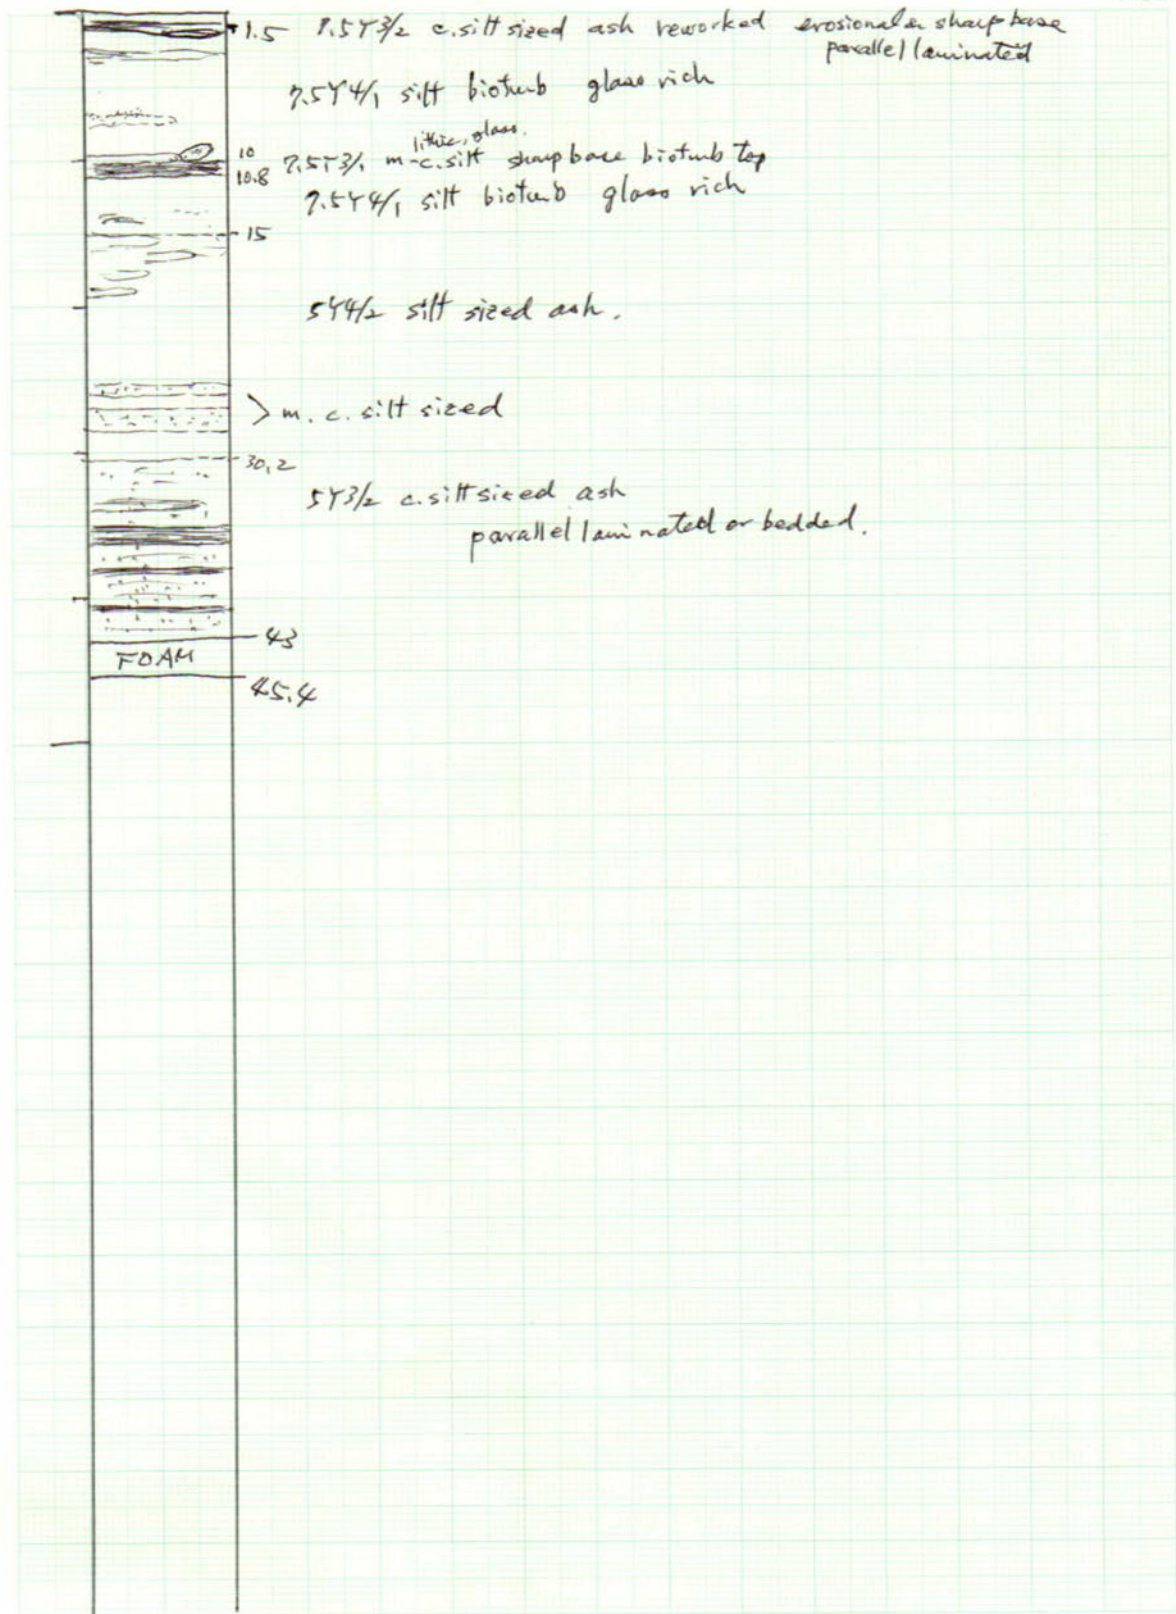 1.5 7.5Y3/2 c.silt sized ash reworked erosional & sharp base
parallel laminated
7.5Y4/1 silt bioturb glass rich
lithic, glass.
10 7.5Y3/1 m-c.silt sharp base bioturb top
10.8
7.5Y4/1 silt bioturb glass rich
15
5Y4/2 silt sized ash.
> m. c. silt sized
30.2
5Y3/2 c.silt sized ash
parallel laminated or bedded.
43
FOAM
45.4